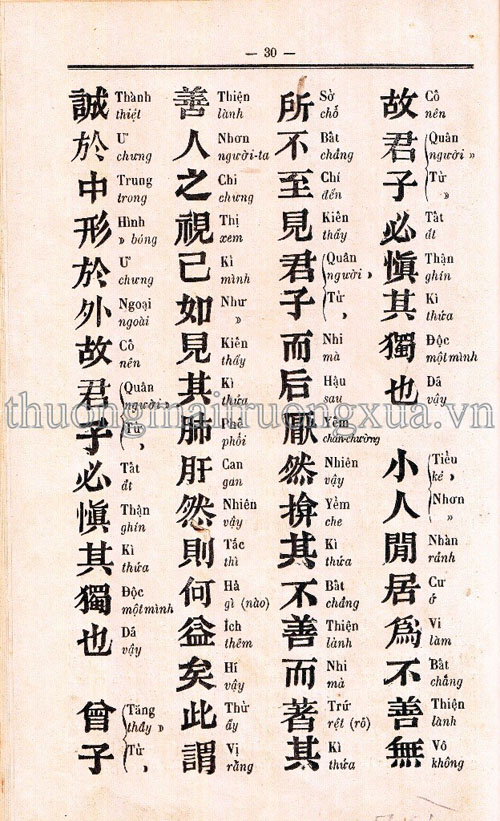 — 30 —
故 Cố nên
君 (Quân người »
子 Tử »
必 Tất ắt
愼 Thận ghín
其 Kì thửa
獨 Độc một mình
也 Dã vậy
小 (Tiểu kẻ »
人 Nhơn »
閒 Nhàn rảnh
居 Cư ở
爲 Vi làm
不 Bất chẳng
善 Thiện lành
無 Vô không
所 Sở chỗ
不 Bất chẳng
至 Chí đến
見 Kiến thấy
君 (Quân người »
子 Tử »
而 Nhi mà
后 Hậu sau
厭 Yểm chán-chường
然 Nhiên vậy
揜 Yểm che
其 Kì thửa
不 Bất chẳng
善 Thiện lành
而 Nhi mà
著 Trứ rệt (rõ)
其 Kì thửa
善 Thiện lành
人 Nhơn người-ta
之 Chi chưng
視 Thị xem
己 Kỉ mình
如 Như »
見 Kiến thấy
其 Kì thửa
肺 Phế phổi
肝 Can gan
然 Nhiên vậy
則 Tắc thì
何 Hà gì (nào)
益 Ích thêm
矣 Hỉ vậy
此 Thử ấy
謂 Vị rằng
誠 Thành thiệt
於 Ư chưng
中 Trung trong
形 Hình » bóng
於 Ư chưng
外 Ngoại ngoài
故 Cố nên
君 (Quân người »
子 Tử »
必 Tất ắt
愼 Thận ghín
其 Kì thửa
獨 Độc một mình
也 Dã vậy
曾 (Tăng thầy »
子 Tử »
thuongmaitruongxua.vn